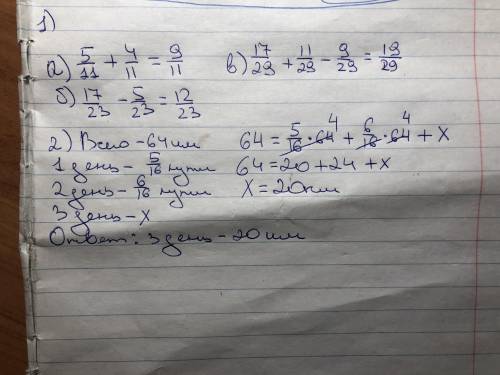 1)
а) 5/11 + 4/11 = 9/11 в) 17/29 + 11/29 - 9/29 = 19/29
б) 17/23 - 5/23 = 12/23
2) Всего - 64 км 64 = 5/16 · 64 4 + 6/16 · 64 4 + x
1 день - 5/16 пути 64 = 20 + 24 + x
2 день - 6/16 пути x = 20 км
3 день - x
Ответ: 3 день - 20 км